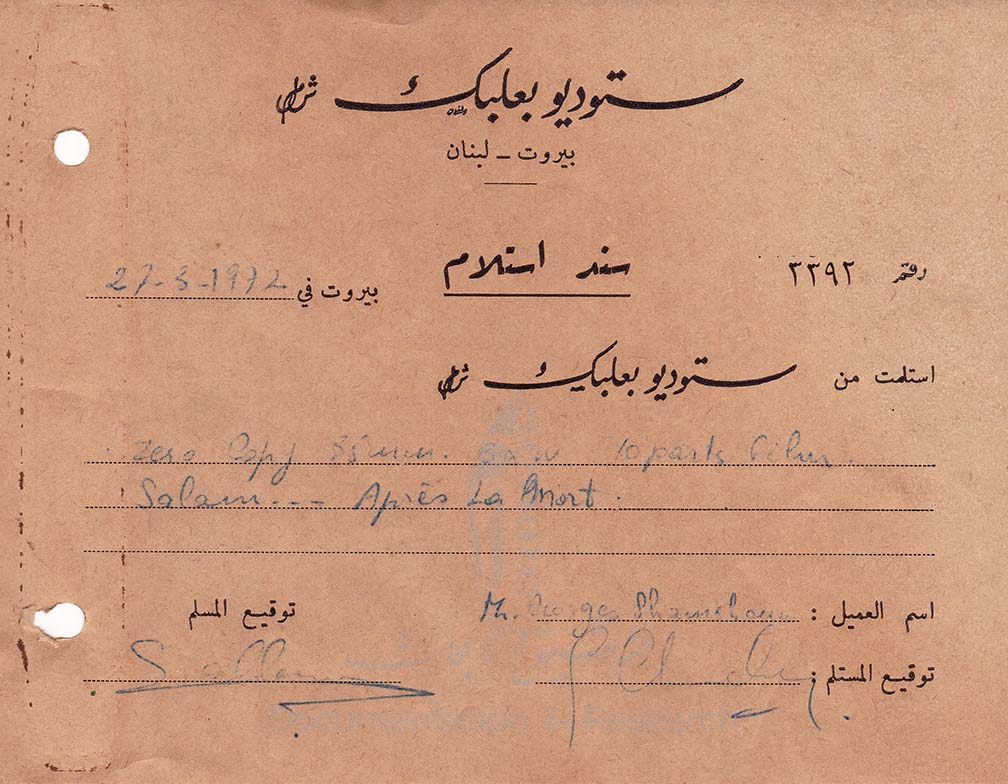 ستوديو بعلبك ش.م.ل
بيروت - لبنان
رقم ٣٣٩٢
سند استلام
بيروت في 27-3-1972
استلمت من ستوديو بعلبك ش.م.ل
Zero Copy 35mm. B&W 10 parts Film.
Salam --- Après La Mort.
اسم العميل : M. Georges Shamshoum
توقيع المسلم
توقيع المستلم :
Documentation & Research